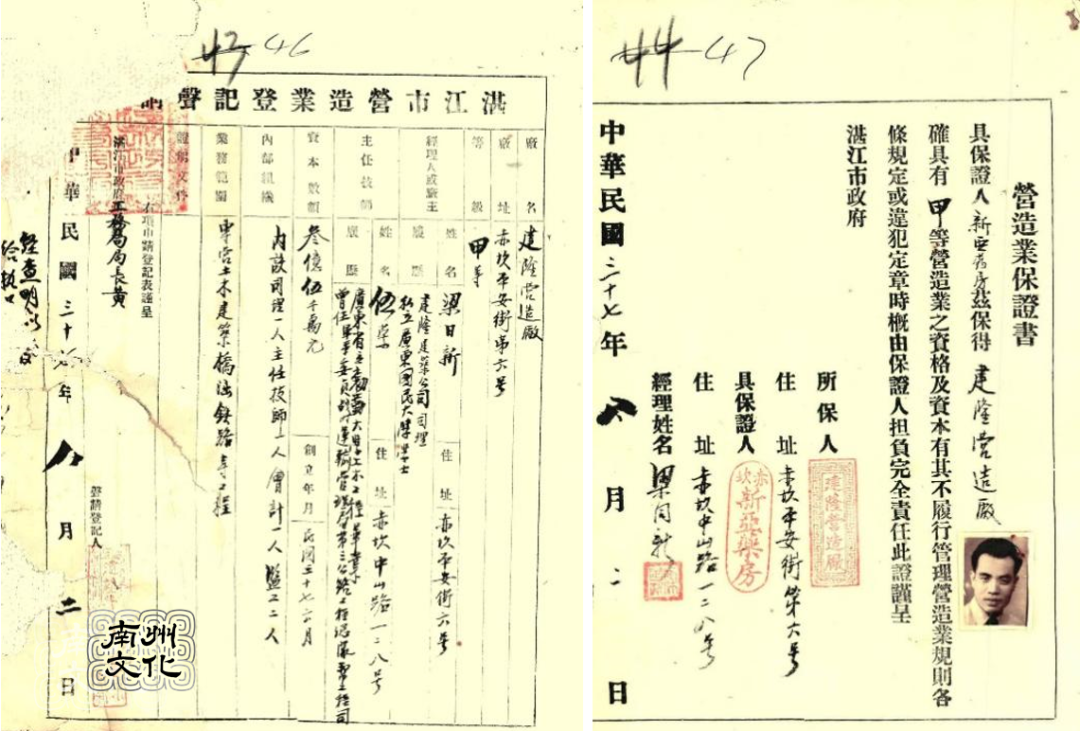 43-46
湛江市營造業登記聲請
廠名
建隆營造廠
廠址
赤坎平安街第六号
等級
甲等
經理人或廠主
姓名
梁日新
住址
赤坎平安街六号
履歷
建隆建築公司司理
私立廣東國民大學學士
主任技師
姓名
伍
住址
赤坎中山路一二八号
履歷
資本數額
叁億伍千萬元
創立年月
民國三十七六月
內部組織
內設司理一人主任技師一人會計一人監工二人
業務範圍
專营土木建築橋
證明文件
右項申請登記表謹呈
湛江市政府工務局局長黃
聲請登記人
中華民國三十七年八月二日
經查明
南州
文化
44-47
營造業保證書
具保證人新亞葯房茲保得建隆營造廠
確具有甲等營造業之資格及資本有其不履行管理營造業規則各
條規定或違犯定章時概由保證人担負完全責任此證謹呈
湛江市政府
所保人
建隆營造廠
住址赤坎平安街第六号
具保證人
赤坎
新亞藥房
住址赤坎中山路一二八号
經理姓名
中華民國三十七年八月二日